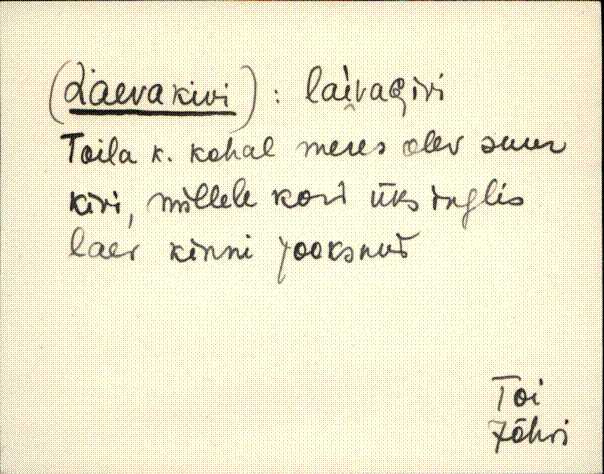 (Laevakivi) : laivaGivi
Toila k. kohal meres olev suur
kivi, millele kord üks inglis
laev kinni jooksnud
Toi
Jõhvi